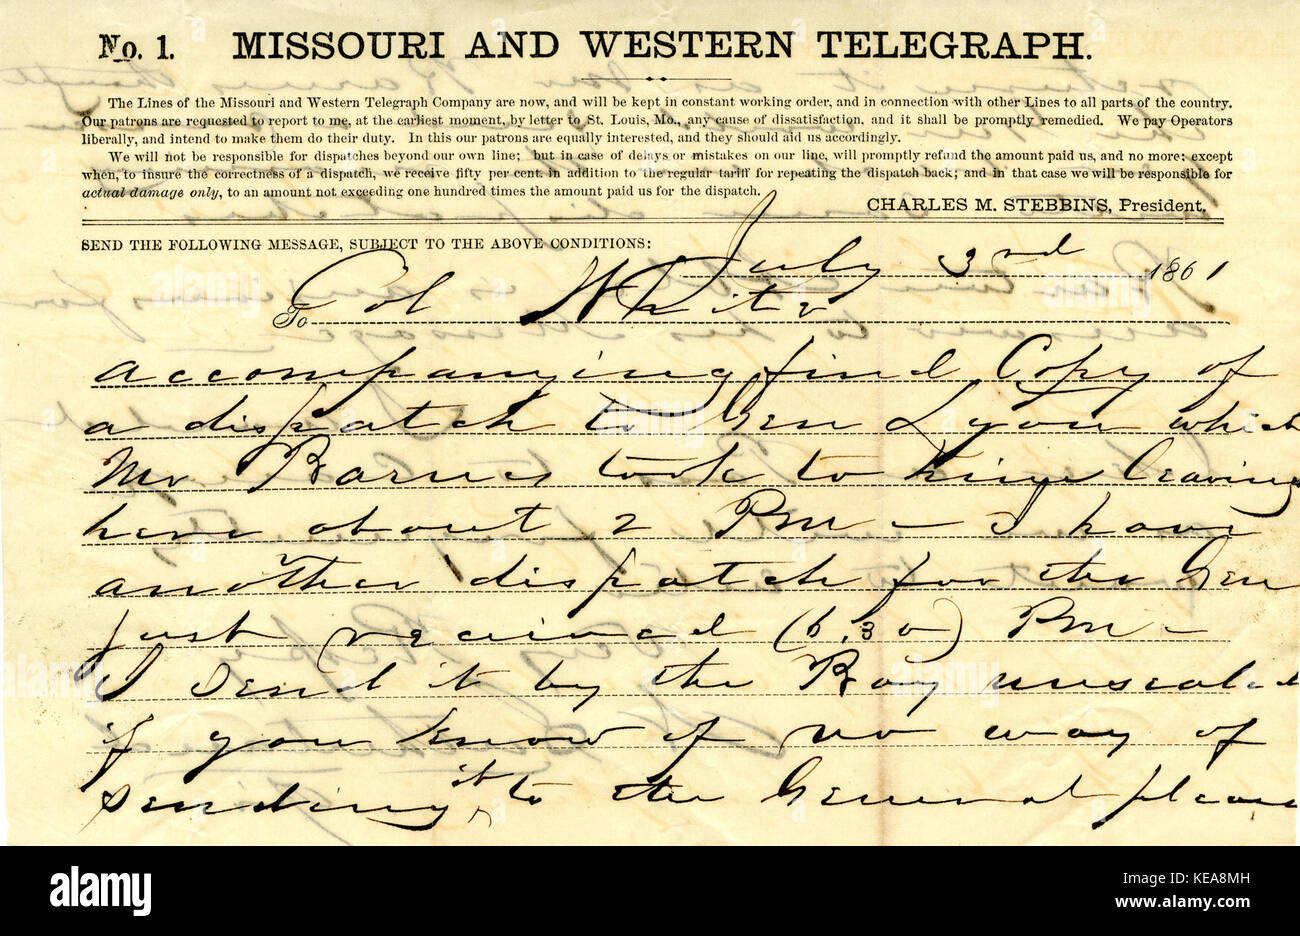 No. 1. MISSOURI AND WESTERN TELEGRAPH.
The Lines of the Missouri and Western Telegraph Company are now, and will be kept in constant working order, and in connection with other Lines to all parts of the country.
Our patrons are requested to report to me, at the earliest moment, by letter to St. Louis, Mo., any cause of dissatisfaction, and it shall be promptly remedied. We pay Operators
liberally, and intend to make them do their duty. In this our patrons are equally interested, and they should aid us accordingly.
We will not be responsible for dispatches beyond our own line; but in case of delays or mistakes on our line, will promptly refund the amount paid us, and no more; except
when, to insure the correctness of a dispatch, we receive fifty per cent. in addition to the regular tariff for repeating the dispatch back; and in that case we will be responsible for
actual damage only, to an amount not exceeding one hundred times the amount paid us for the dispatch.
CHARLES M. STEBBINS, President.
SEND THE FOLLOWING MESSAGE, SUBJECT TO THE ABOVE CONDITIONS:
July 3rd 1861
To Col White
accompanying find Copy of
a dispatch to Gen Lyon which
Mr Barnes took to him leaving
here about 2 PM — I have
another dispatch for the Gen
just received (6.30) PM —
I send it by the Boy unsealed
if you know of no way of
sending it to the General please
alamy
Image ID: KEA8MH
www.alamy.com